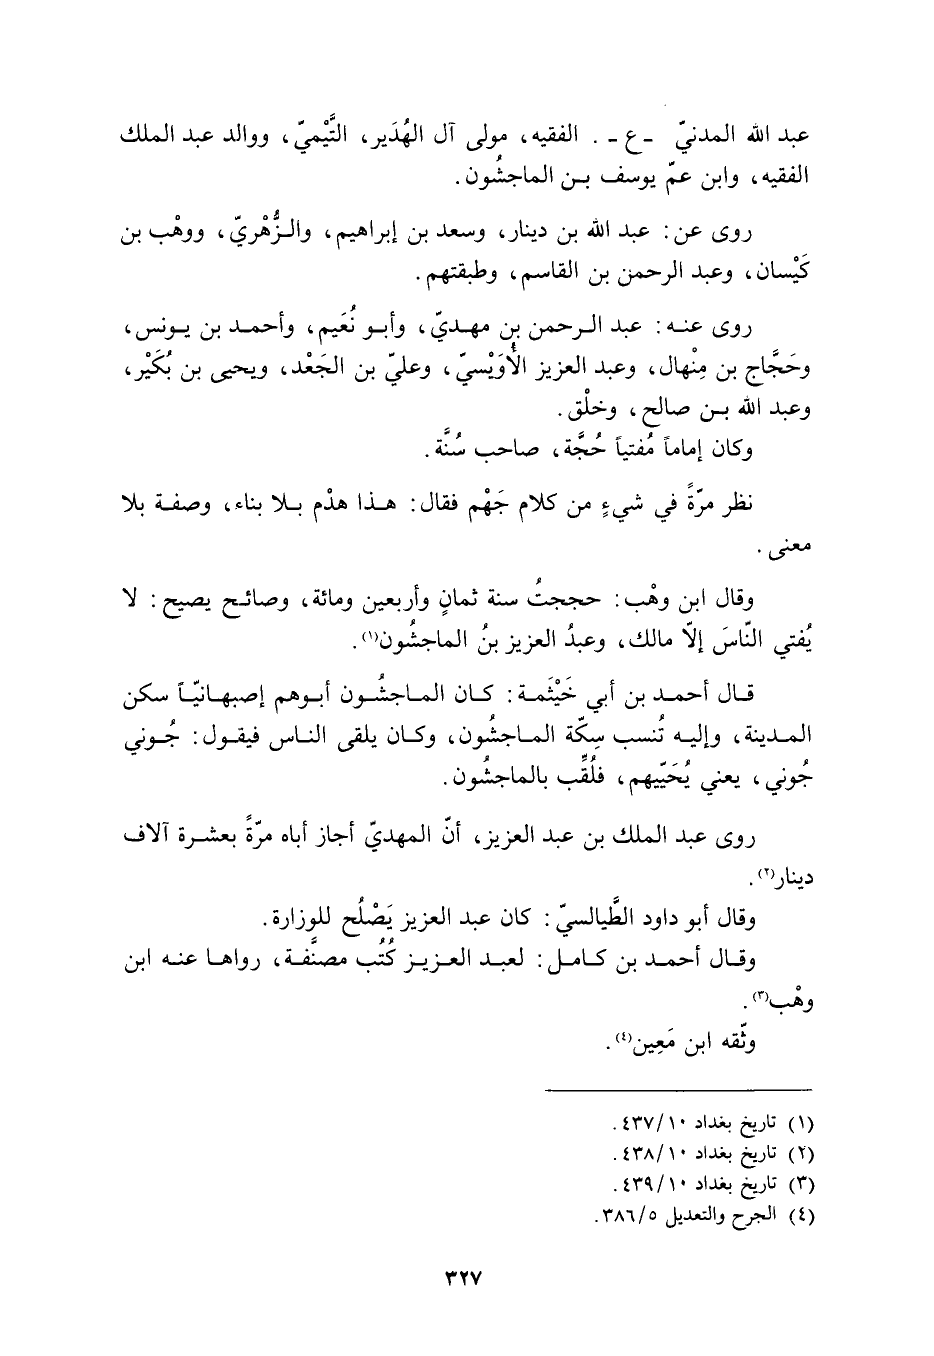 عبد الله المدنيّ ـ ع ـ . الفقيه، مولى آل الهُدَير، التَّيْميّ، ووالد عبد الملك
الفقيه، وابن عمّ يوسف بن الماجشُون.
روى عن: عبد الله بن دينار، وسعد بن إبراهيم، والزُّهْريّ، ووهْب بن
كَيْسان، وعبد الرحمن بن القاسم، وطبقتهم.
روى عنه: عبد الرحمن بن مهديّ، وأبو نُعَيم، وأحمد بن يونس،
وحَجَّاج بن مِنْهال، وعبد العزيز الأُوَيْسيّ، وعليّ بن الجَعْد، ويحيى بن بُكَيْر،
وعبد الله بن صالح، وخلْق.
وكان إماماً مُفتياً حُجَّة، صاحب سُنَّة.
نظر مرّةً في شيءٍ من كلام جَهْم فقال: هذا هدْم بلا بناء، وصفة بلا
معنى.
وقال ابن وهْب: حججتُ سنة ثمانٍ وأربعين ومائة، وصائح يصيح: لا
يُفتي النّاسَ إلاّ مالك، وعبدُ العزيز بنُ الماجشُون(١).
قال أحمد بن أبي خَيْثَمة: كان الماجشُون أبوهم إصبهانيّاً سكن
المدينة، وإليه تُنسب سِكّة الماجشُون، وكان يلقى الناس فيقول: جُوني
جُوني، يعني يُحَيّيهم، فلُقِّب بالماجشُون.
روى عبد الملك بن عبد العزيز، أنّ المهديّ أجاز أباه مرّةً بعشرة آلاف
دينار(٢).
وقال أبو داود الطَّيالسيّ: كان عبد العزيز يَصْلُح للوزارة.
وقال أحمد بن كامل: لعبد العزيز كُتُب مصنَّفة، رواها عنه ابن
وهْب(٣).
وثّقه ابن مَعِين(٤).
(١) تاريخ بغداد ٤٣٧/١٠.
(٢) تاريخ بغداد ٤٣٨/١٠.
(٣) تاريخ بغداد ٤٣٩/١٠.
(٤) الجرح والتعديل ٣٨٦/٥.
٣٢٧